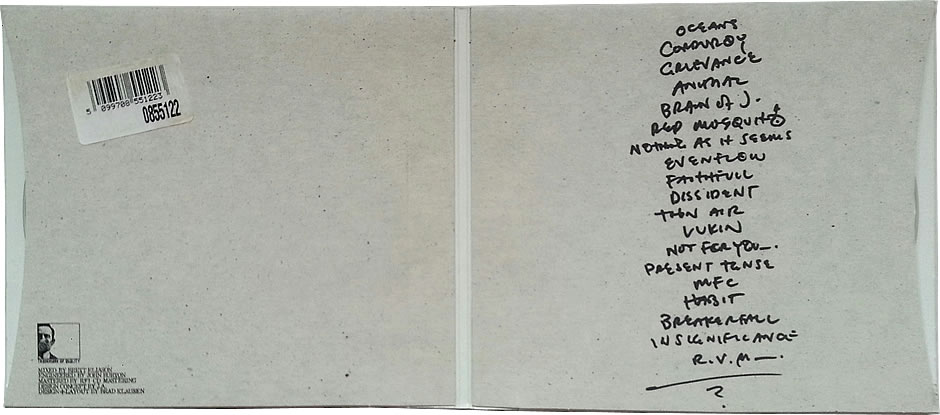 5 099708 551223
0855122
TRADEMARK OF QUALITY
MIXED BY BRETT ELIASON
ENGINEERED BY JOHN BURTON
MASTERED BY RFI CD MASTERING
DESIGN CONCEPT BY J.A.
DESIGN + LAYOUT BY BRAD KLAUSEN
OCEANS
CORDUROY
GRIEVANCE
ANIMAL
BRAIN OF J.
RED MOSQUITO
NOTHING AS IT SEEMS
EVENFLOW
FAITHFULL
DISSIDENT
THIN AIR
LUKIN
NOT FOR YOU.
PRESENT TENSE
MFC
HABIT
BREAKERFALL
INSIGNIFICANCE
R.V.M
?